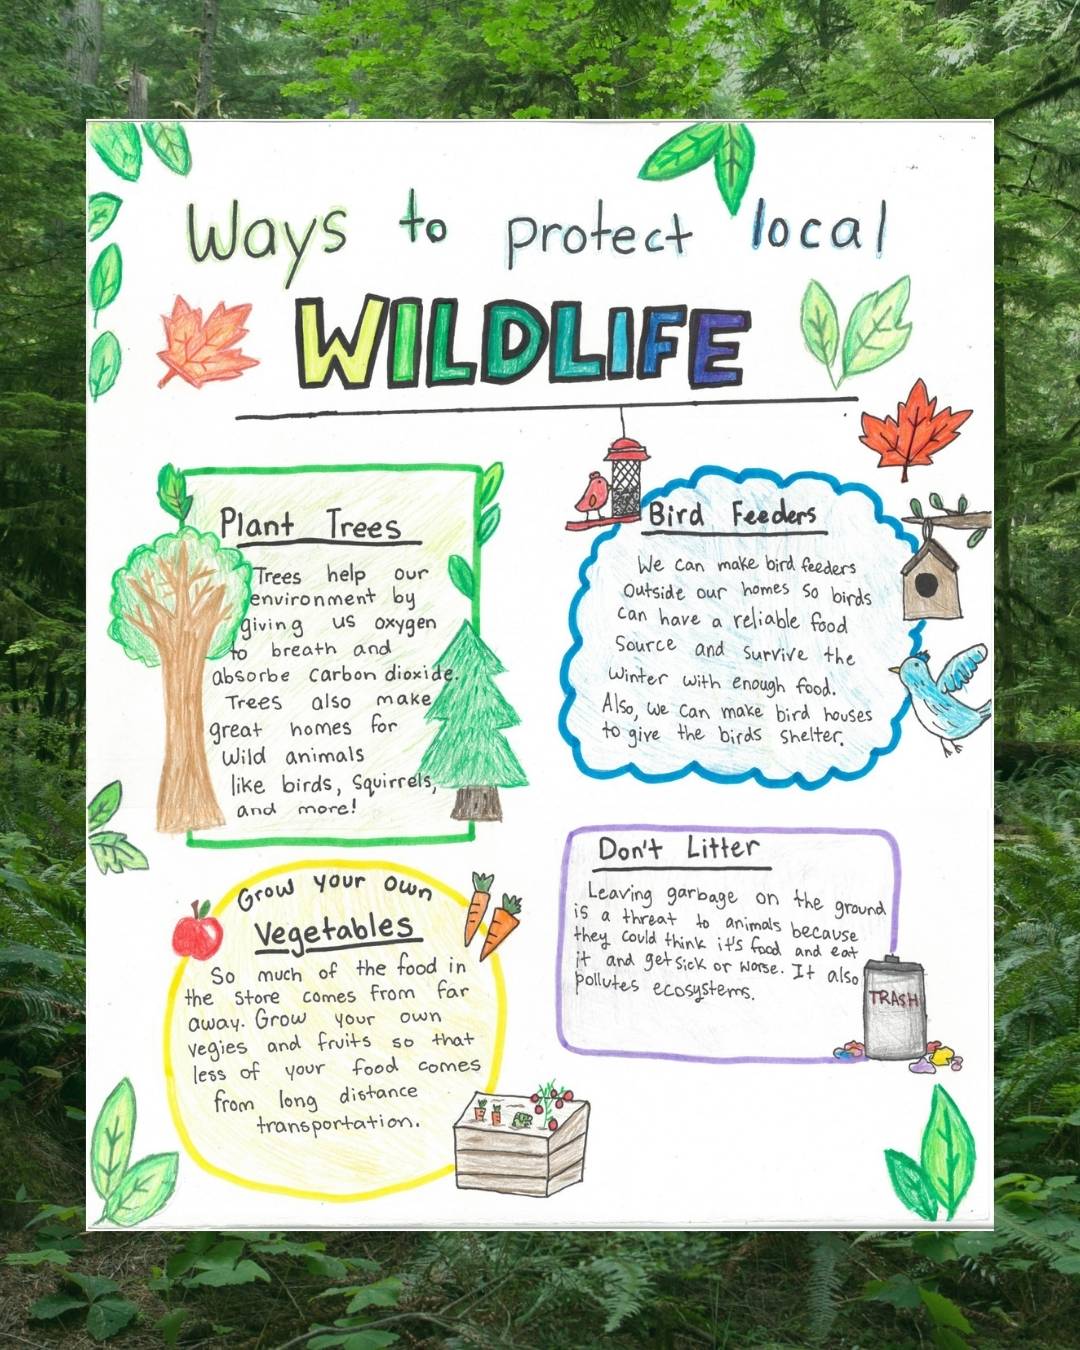 Ways to protect local
WILDLIFE
Plant Trees
Trees help our
environment by
giving us oxygen
to breath and
absorbe carbon dioxide.
Trees also make
great homes for
wild animals
like birds, squirrels,
and more!
Bird Feeders
We can make bird feeders
outside our homes so birds
can have a reliable food
source and survive the
winter with enough food.
Also, we can make bird houses
to give the birds shelter.
Grow your own
Vegetables
So much of the food in
the store comes from far
away. Grow your own
vegies and fruits so that
less of your food comes
from long distance
transportation.
Don't Litter
Leaving garbage on the ground
is a threat to animals because
they could think it's food and eat
it and get sick or worse. It also
pollutes ecosystems.
TRASH